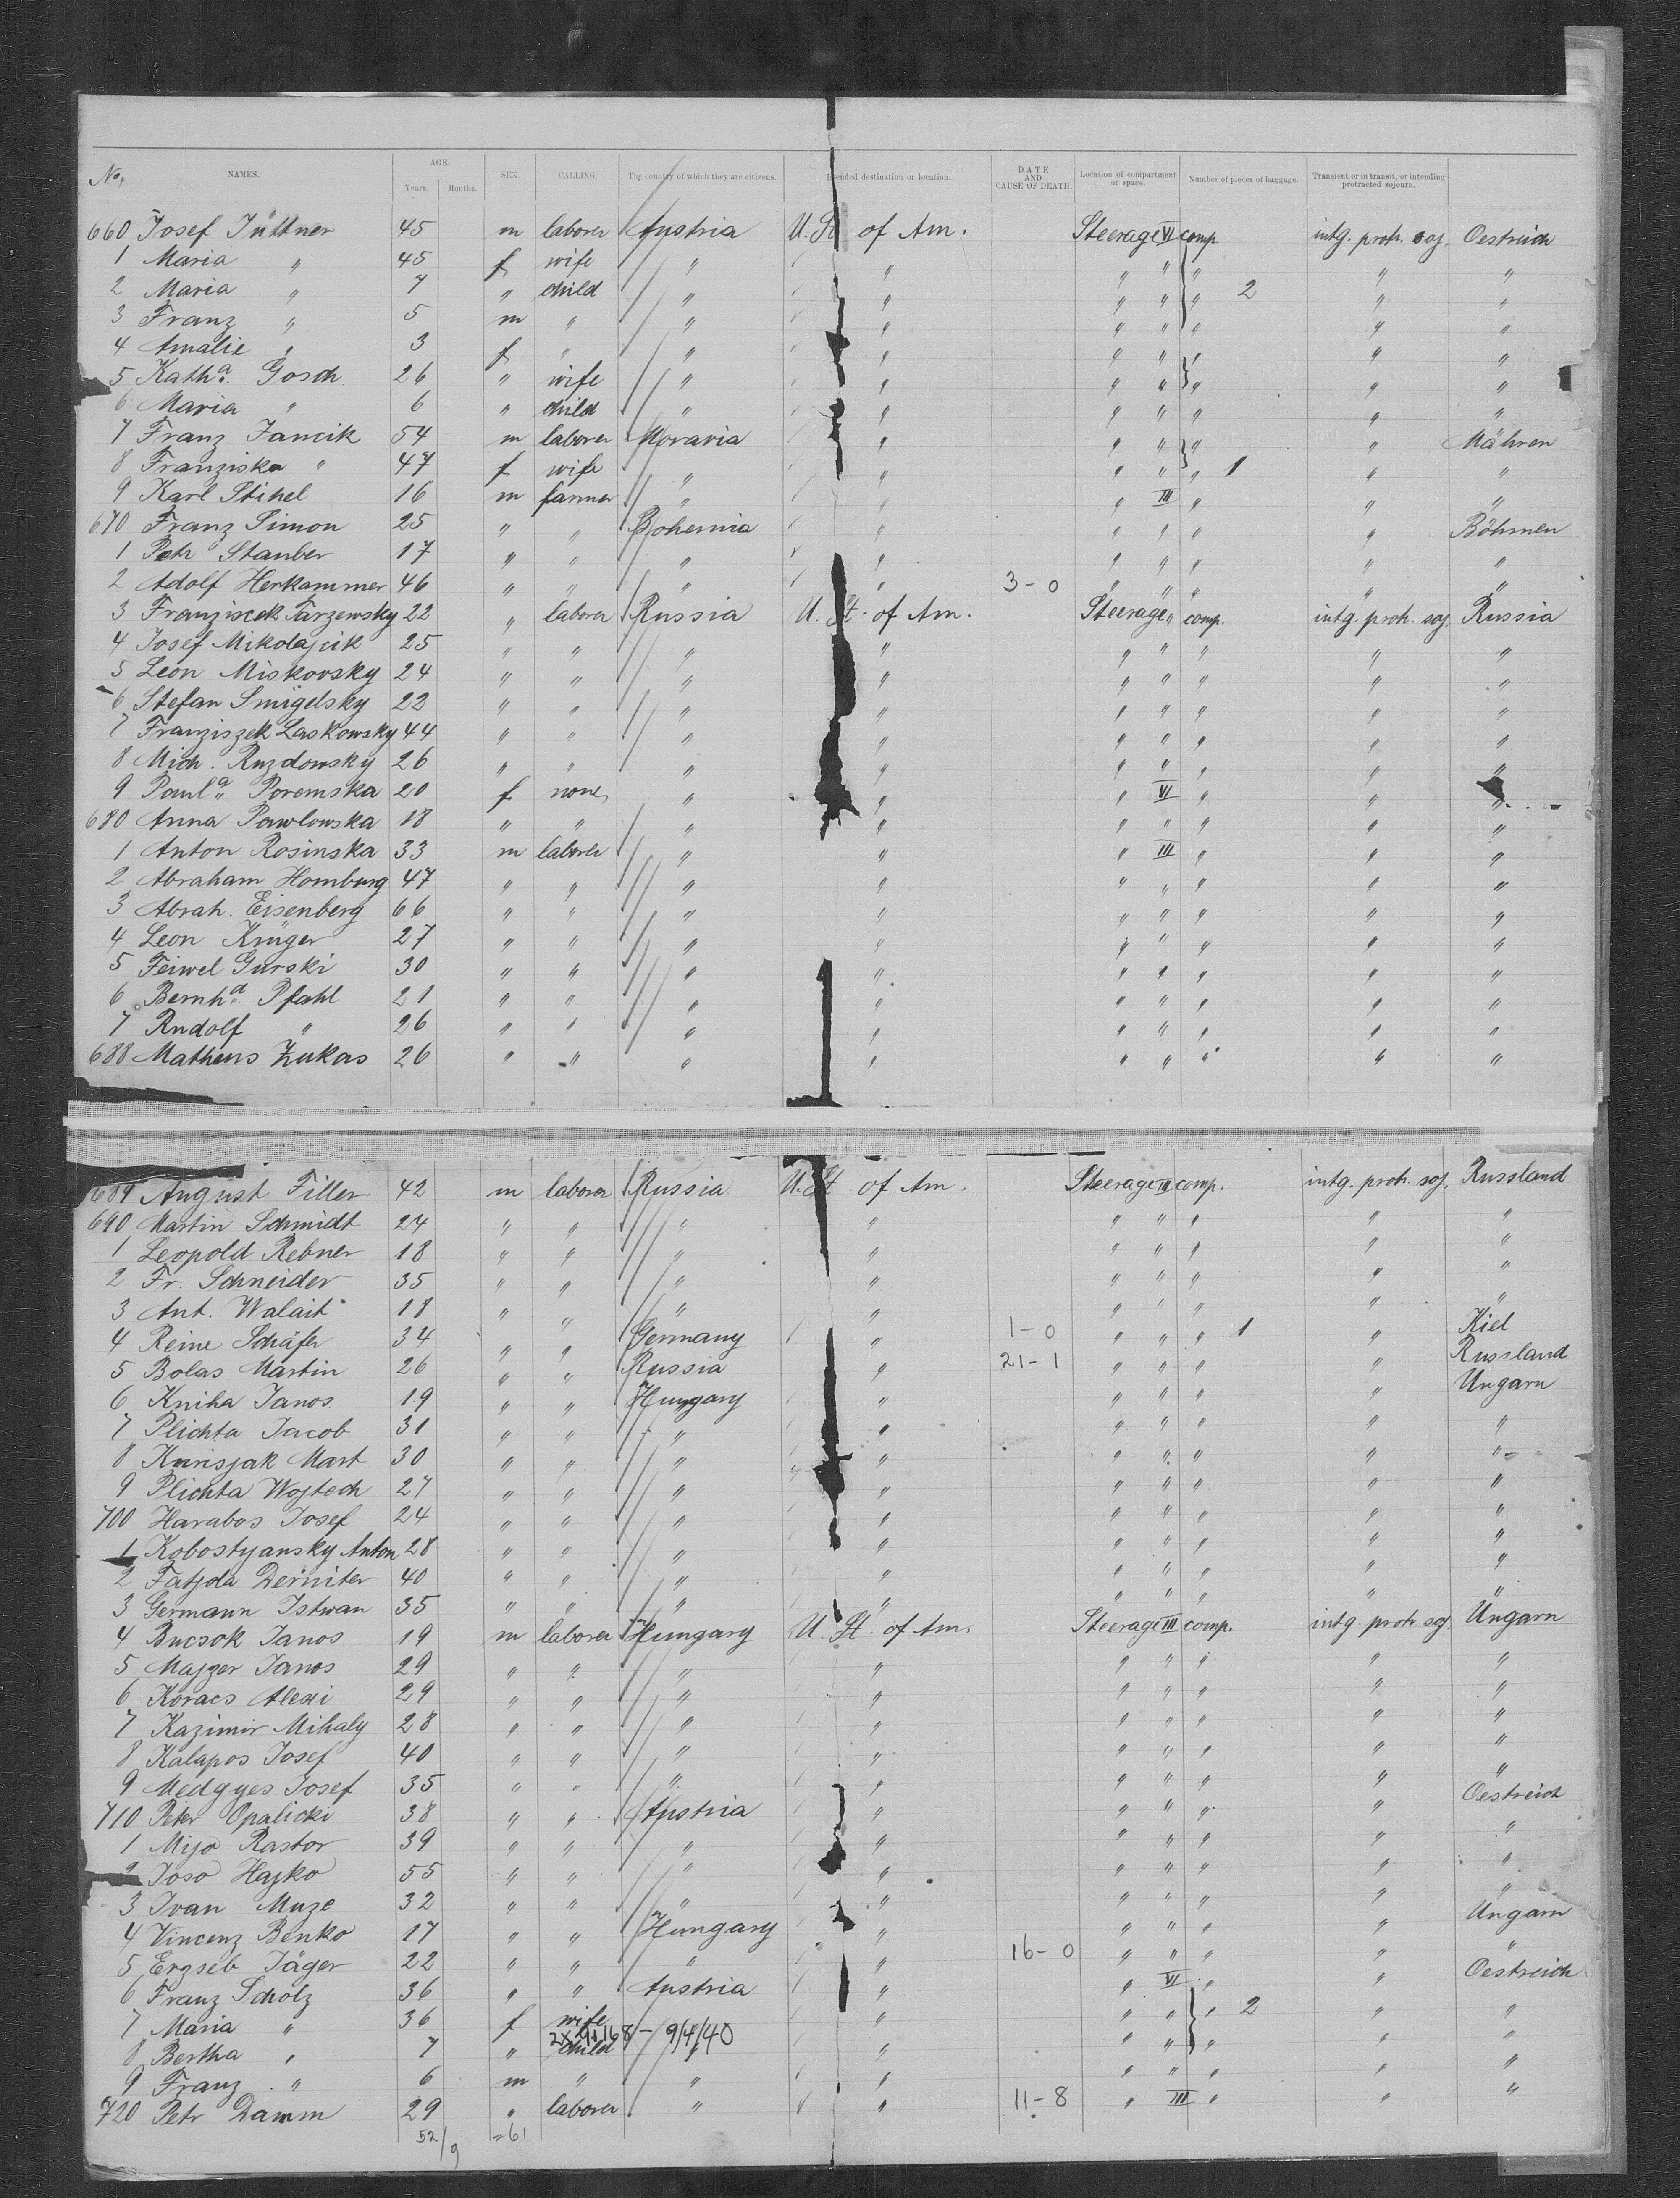 No. NAMES. AGE. Years. Months. SEX. CALLING. The country of which they are citizens. Intended destination or location. DATE AND CAUSE OF DEATH. Location of compartment or space. Number of pieces of baggage. Transient or in transit, or intending protracted sojourn.
660 Josef Jüttner 45 m laborer Austria U. St. of Am. Steerage VI comp. intg. protr. soj. Oestreich
1 Maria " 45 f wife " " " " " " "
2 Maria " 7 " child " " " " " 2 " "
3 Franz " 5 m " " " " " " " "
4 Amalie " 3 f " " " " " " " "
5 Katha. Gosch 26 " wife " " " " " " "
6 Maria " 6 " child " " " " " " "
7 Franz Jancik 54 m laborer Moravia " " " " " Mähren
8 Franziska " 47 f wife " " " " " 1 " "
9 Karl Stihel 16 m farmer " " " III " " "
670 Franz Simon 25 " " Bohemia " " " " " Böhmen
1 Petr Stauber 17 " " " " " " " " "
2 Adolf Herkammer 46 " " " " 3-0 " " " " "
3 Franziscek Tarzewsky 22 " laborer Russia U. St. of Am. Steerage " comp. intg. protr. soj. Russia
4 Josef Mikolajcik 25 " " " " " " " " "
5 Leon Miskovsky 24 " " " " " " " " "
6 Stefan Smigelsky 22 " " " " " " " " "
7 Franziszek Laskowsky 44 " " " " " " " " "
8 Mich. Ruzdowsky 26 " " " " " " " " "
9 Paula. Poremska 20 f none " " " VI " " "
680 Anna Pawlowska 18 " " " " " " " " "
1 Anton Rosinska 33 m laborer " " " III " " "
2 Abraham Homburg 47 " " " " " " " " "
3 Abrah. Eisenberg 66 " " " " " " " " "
4 Leon Krüger 27 " " " " " " " " "
5 Feiwel Gurski 30 " " " " " " " " "
6 Bernhd. Pfahl 21 " " " " " " " " "
7 Rudolf " 26 " " " " " " " " "
688 Matheus Zukas 26 " " " " " " " " "
689 August Filler 42 m laborer Russia U. St. of Am. Steerage III comp. intg. protr. soj. Russland
690 Martin Schmidt 24 " " " " " " " " "
1 Leopold Rebner 18 " " " " " " " " "
2 Fr. Schneider 35 " " " " " " " " "
3 Ant. Walait 18 " " " " " " " " "
4 Reine Schäfer 34 " " Germany " 1-0 " " " 1 " Kiel
5 Bolas Martin 26 " " Russia " 21-1 " " " " Russland
6 Kniha Janos 19 " " Hungary " " " " " Ungarn
7 Plichta Jacob 31 " " " " " " " " "
8 Kurisjak Mart 30 " " " " " " " " "
9 Plichta Wojtech 27 " " " " " " " " "
700 Harabos Josef 24 " " " " " " " " "
1 Kobostyansky Anton 28 " " " " " " " " "
2 Fatjola Demiter 40 " " " " " " " " "
3 Germann Istwan 35 " " " " " " " " "
4 Bucsok Janos 19 m laborer Hungary U. St. of Am. Steerage III comp. intg. protr. soj. Ungarn
5 Majzer Janos 29 " " " " " " " " "
6 Kovacs Alexi 29 " " " " " " " " "
7 Kazimir Mihaly 28 " " " " " " " " "
8 Kalapos Josef 40 " " " " " " " " "
9 Medgyes Josef 35 " " " " " " " " "
710 Peter Opalicki 38 " " Austria " " " " " Oestreich
1 Mijo Rastor 39 " " " " " " " " "
2 Joso Hajko 55 " " " " " " " " "
3 Ivan Muze 32 " " " " " " " " "
4 Vincenz Benko 17 " " Hungary " " " " " Ungarn
5 Erzseb Jäger 22 " " " " 16-0 " " " " "
6 Franz Scholz 36 " " Austria " " VI " " Oestreich
7 Maria " 36 f wife " " " " 2 " "
2X-91168 - 9/4/40
8 Bertha " 7 " child " " " " " " "
9 Franz " 6 m " " " " " " " "
720 Petr Damm 29 " laborer " " 11-8 " III " " "
52/9 =61